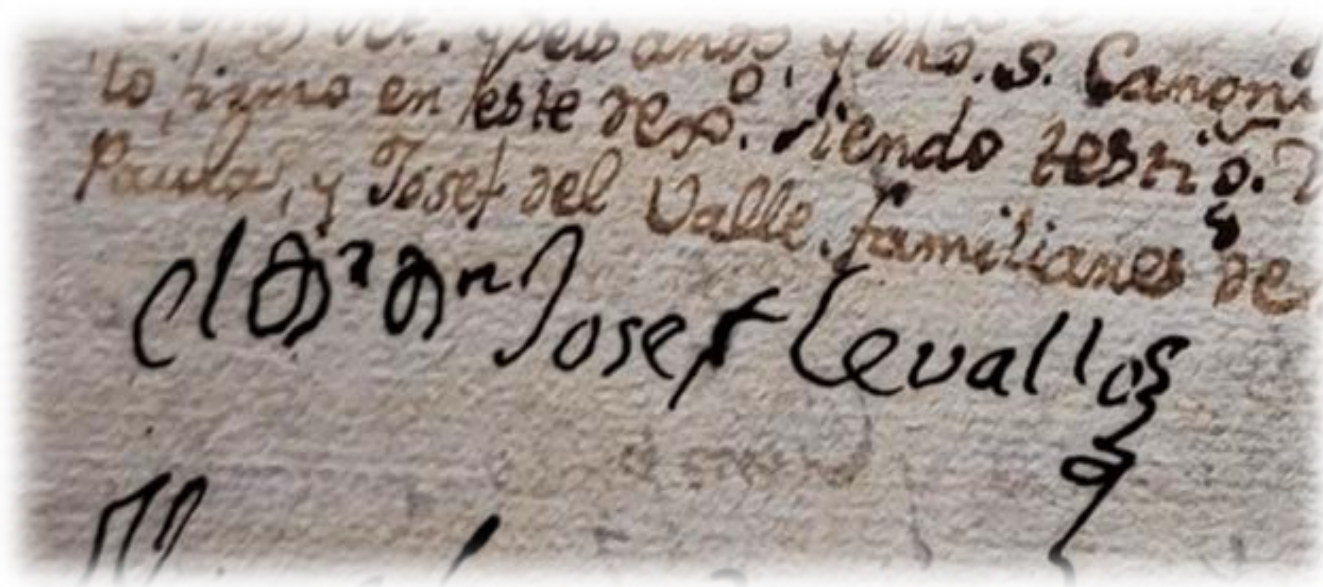 años, y dho. S. Canoni
lo firmo en este rexo. siendo testigo.
Paula, y Josef del Valle, familiares de
el Dr Dn Josef Cevallos